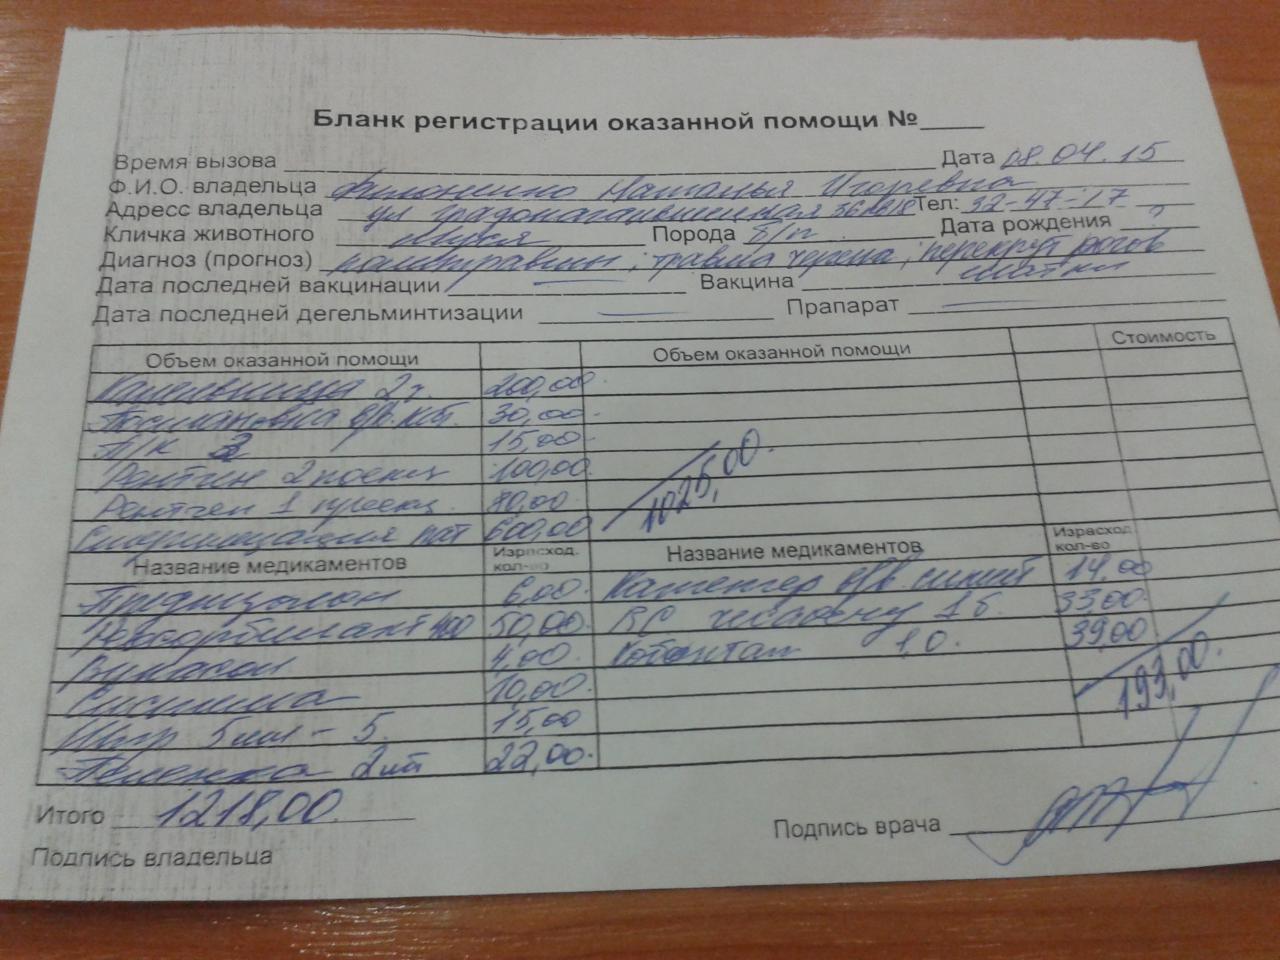 Бланк регистрации оказанной помощи №
Время вызова Дата 08.04.15
Ф.И.О. владельца Филоненко Наталья Игоревна
Адресс владельца ул Тел: 32-47-17
Кличка животного Муся Порода б/п Дата рождения ?
Диагноз (прогноз) политравма, травма черепа, перекрут рогов
матки
Дата последней вакцинации Вакцина
Дата последней дегельминтизации Прапарат
Объем оказанной помощи Объем оказанной помощи Стоимость
Капельница 2 200,00
Постановка в/в кат. 30,00
П/К 15,00
Рентген 2 проекц 100,00 1025,00
Рентген 1 проекц. 80,00
Стерилизация пат 600,00
Название медикаментов Израсход. кол-во Название медикаментов Израсход кол-во
Преднизолон 6,00 Катетер в/в синий 14,00
50,00 1б. 33,00
4,00 1,0. 39,00
Система 10,00 193,00.
Шпр 5мл - 5. 15,00
Пеленка 2шт 22,00
Итого 1218,00 Подпись врача
Подпись владельца